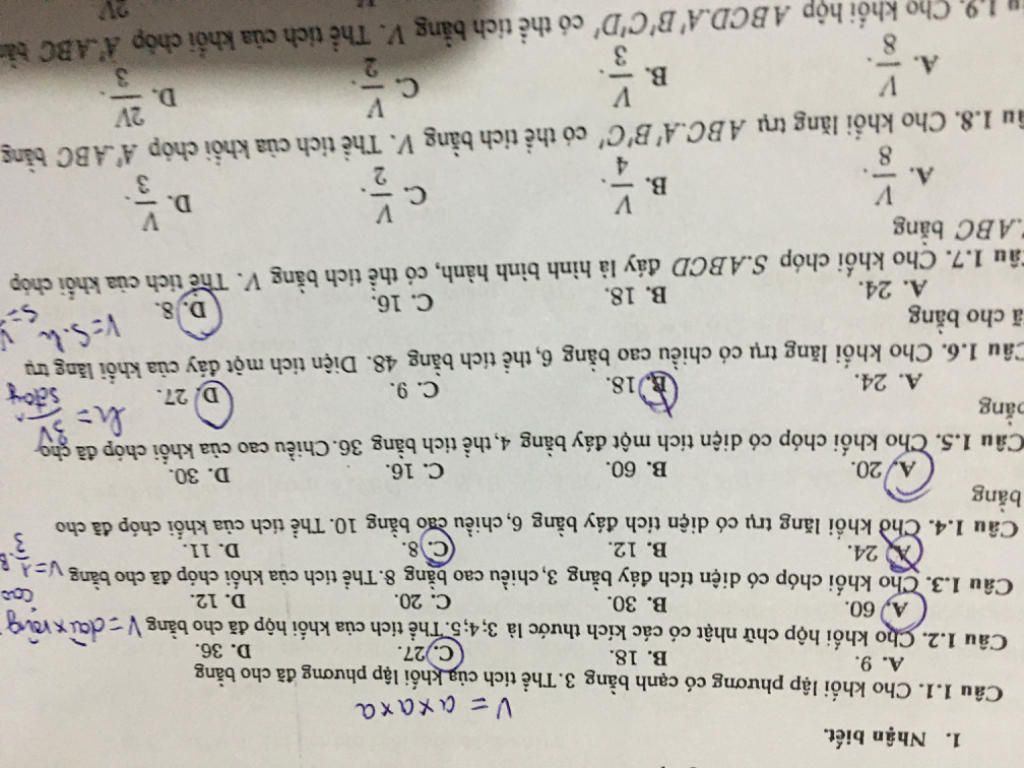 1. Nhận biết.
V = a x a x a
Câu 1.1. Cho khối lập phương có cạnh bằng 3. Thể tích của khối lập phương đã cho bằng
A. 9. B. 18. C. 27. D. 36.
Câu 1.2. Cho khối hộp chữ nhật có các kích thước là 3;4;5. Thể tích của khối hộp đã cho bằng V = dài x rộng
A. 60. B. 30. C. 20. D. 12.
Câu 1.3. Cho khối chóp có diện tích đáy bằng 3, chiều cao bằng 8. Thể tích của khối chóp đã cho bằng V = 1/3 . B
A. 24. B. 12. C. 8. D. 11.
Câu 1.4. Cho khối lăng trụ có diện tích đáy bằng 6, chiều cao bằng 10. Thể tích của khối chóp đã cho
bằng
A. 20. B. 60. C. 16. D. 30.
Câu 1.5. Cho khối chóp có diện tích một đáy bằng 4, thể tích bằng 36. Chiều cao của khối chóp đã cho
bằng h = 3V / Sđáy
A. 24. B. 18. C. 9. D. 27.
Câu 1.6. Cho khối lăng trụ có chiều cao bằng 6, thể tích bằng 48. Diện tích một đáy của khối lăng trụ
ã cho bằng V = S.h S =
A. 24. B. 18. C. 16. D. 8.
Câu 1.7. Cho khối chóp S.ABCD đáy là hình bình hành, có thể tích bằng V. Thể tích của khối chóp
.ABC bằng
A. V/8. B. V/4. C. V/2. D. V/3.
âu 1.8. Cho khối lăng trụ ABC.A'B'C' có thể tích bằng V. Thể tích của khối chóp A'.ABC bằng
A. V/8. B. V/3. C. V/2. D. 2V/3.
u 1.9. Cho khối hộp ABCD.A'B'C'D' có thể tích bằng V. Thể tích của khối chóp A'.ABC bằn
2V